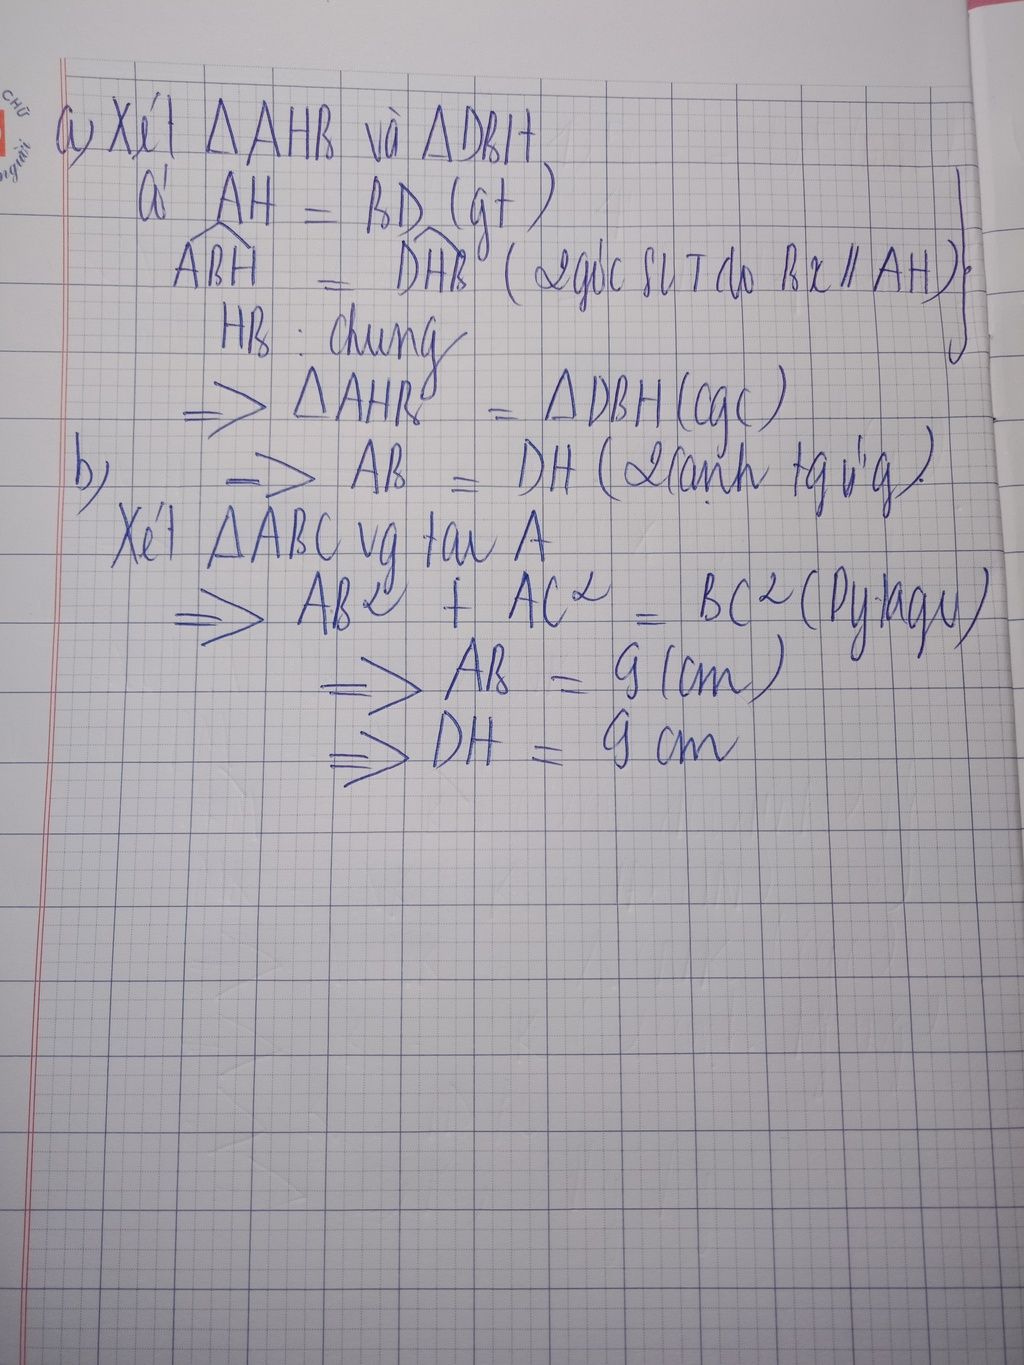 CHỮ
ngiải
a, Xét ΔAHB và ΔDBH
có AH = BD (gt)
ABH = DHB (2 góc SLT do Bx // AH)
HB : chung
=> ΔAHB = ΔDBH (cgc)
b, => AB = DH (2 cạnh tg ứg)
Xét ΔABC vg tại A
=> AB² + AC² = BC² (Pytago)
=> AB = 9 (cm)
=> DH = 9 cm